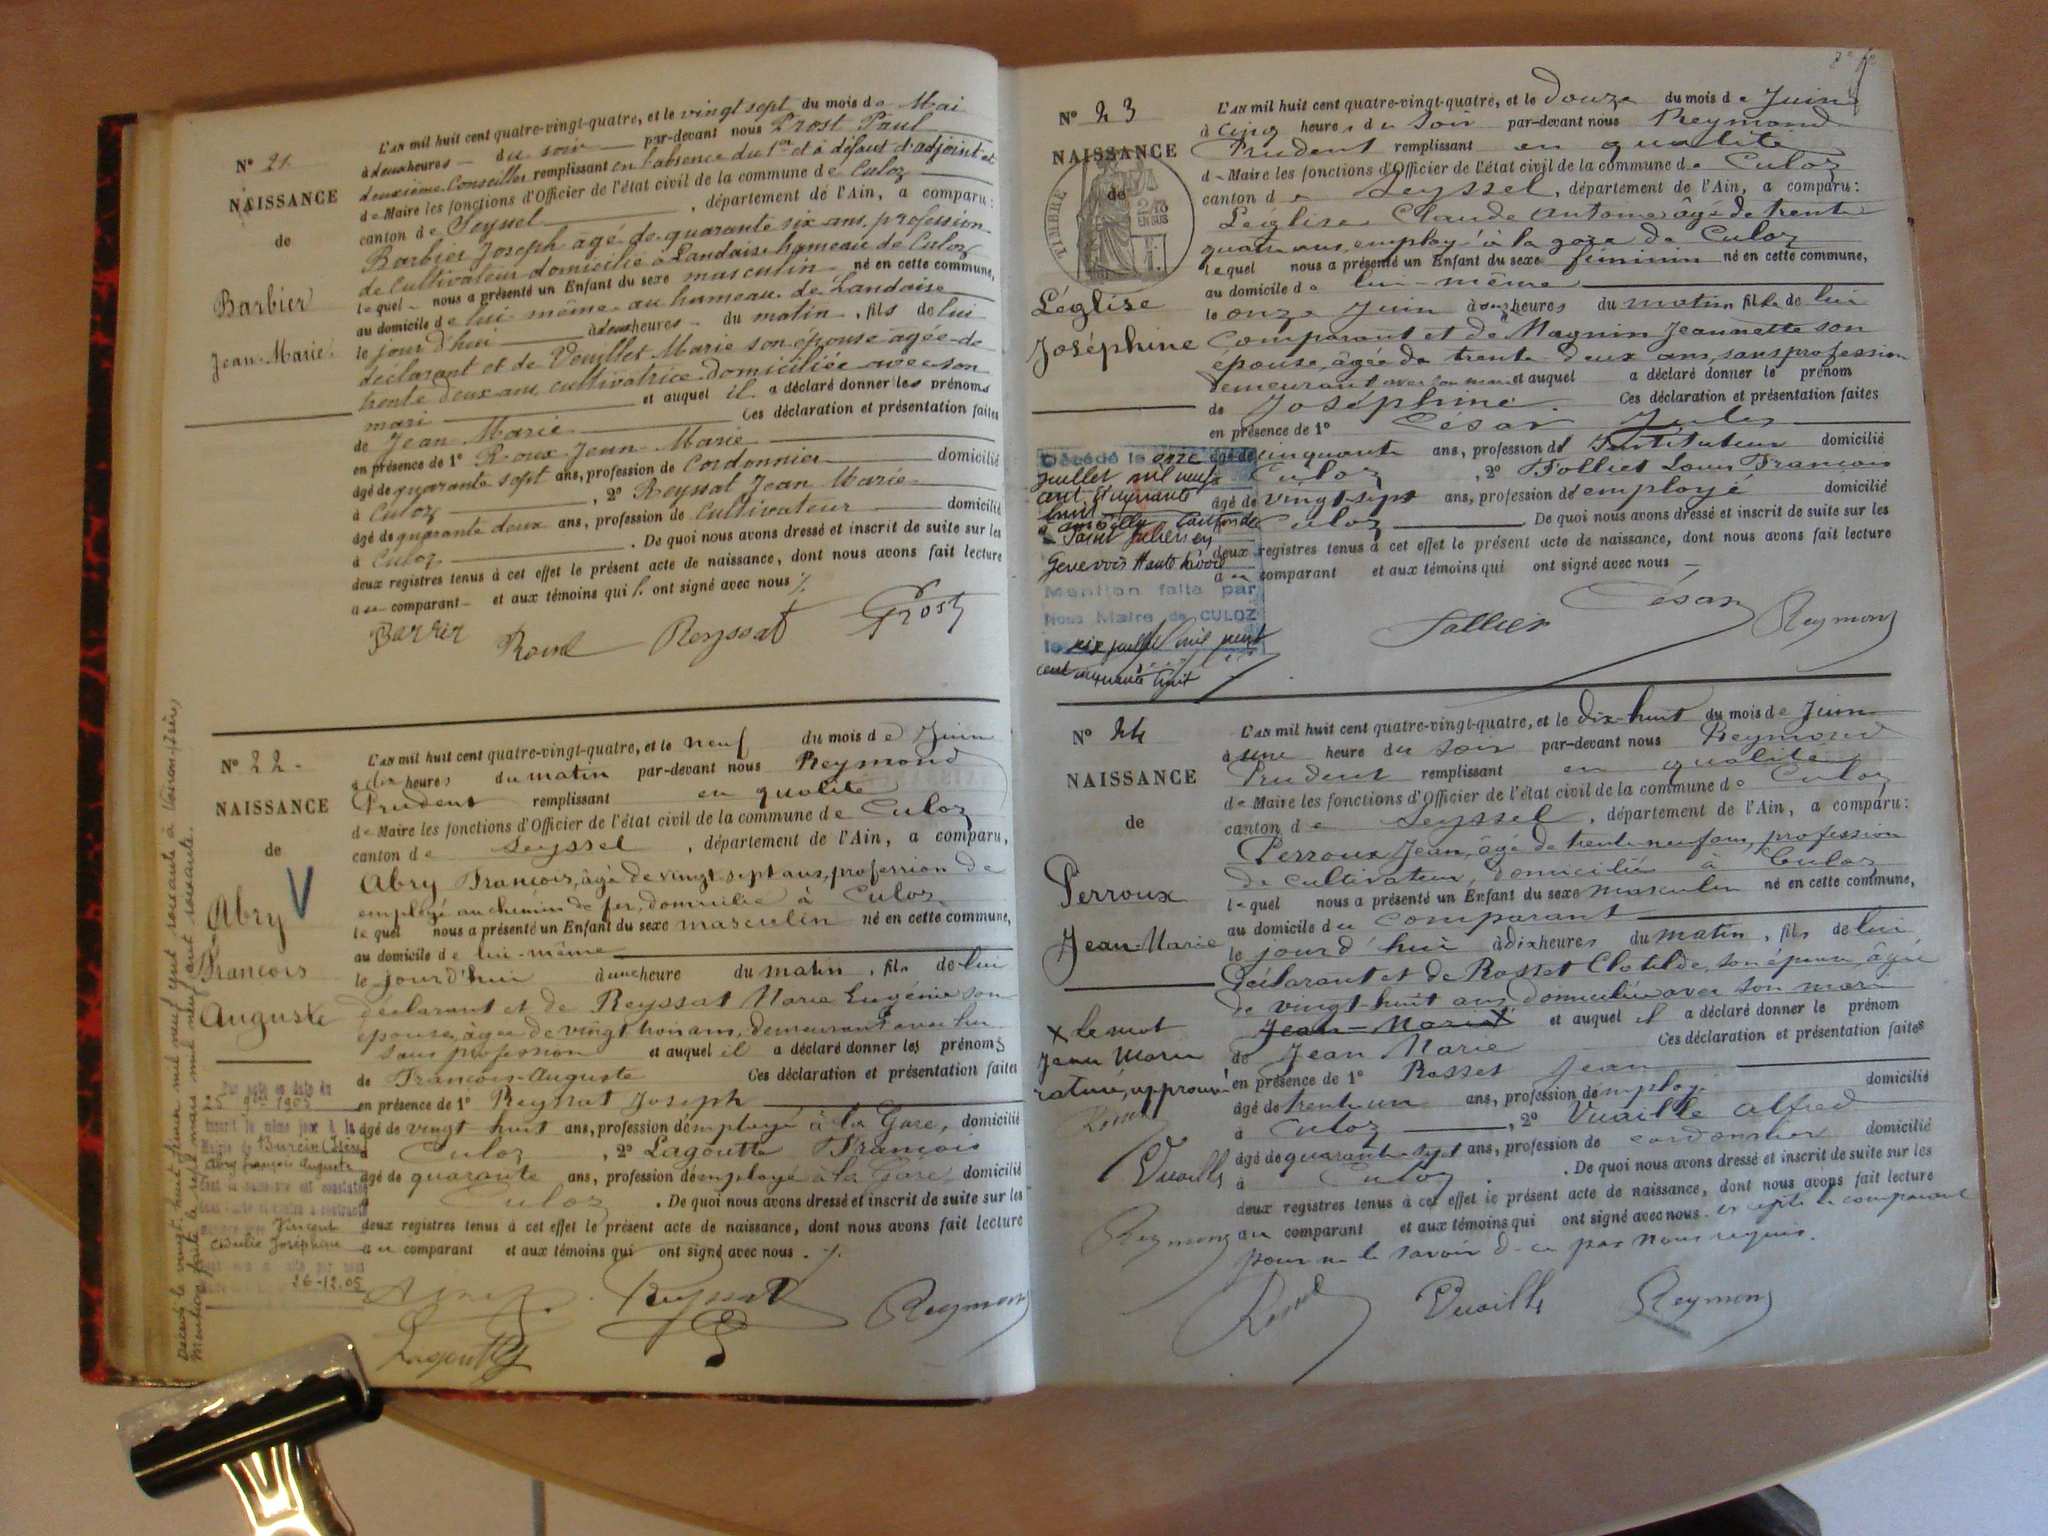 L'AN mil huit cent quatre-vingt-quatre, et le vingt sept du mois de Mai
à deux heures du soir par-devant nous Prost Paul
deuxième Conseiller remplissant en l'absence du 1er et à défaut d'adjoint et
de Maire les fonctions d'Officier de l'état civil de la commune de Culoz
canton de Seyssel, département de l'Ain, a comparu:
Barbier Joseph âgé de quarante six ans, profession
de cultivateur domicilié à Landaise hameau de Culoz
lequel nous a présenté un Enfant du sexe masculin né en cette commune,
au domicile de lui même au hameau de Landaise
le jour d'hui à deux heures du matin, fils de lui
déclarant et de Vuillet Marie son épouse âgée de
trente deux ans, cultivatrice domiciliée avec son
mari et auquel il a déclaré donner les prénoms
de Jean Marie Ces déclaration et présentation faites
en présence de 1° Roux Jean Marie
âgé de quarante sept ans, profession de Cordonnier domicilié
à Culoz, 2° Reyssat Jean Marie
âgé de quarante deux ans, profession de cultivateur domicilié
à Culoz. De quoi nous avons dressé et inscrit de suite sur les
deux registres tenus à cet effet le présent acte de naissance, dont nous avons fait lecture
au comparant et aux témoins qui ont signé avec nous
N° 21
NAISSANCE
de
Barbier
Jean-Marie
Reyssat Prost
N° 22
NAISSANCE
de
Abry
François
Auguste
L'AN mil huit cent quatre-vingt-quatre, et le neuf du mois de Juin
à dix heures du matin par-devant nous Reymond
Prudent remplissant en qualité
de Maire les fonctions d'Officier de l'état civil de la commune de Culoz
canton de Seyssel, département de l'Ain, a comparu,
Abry François, âgé de vingt sept ans, profession de
employé au chemin de fer, domicilié à Culoz
lequel nous a présenté un Enfant du sexe masculin né en cette commune,
au domicile de lui-même
le jourd'hui à une heure du matin, fils de lui
déclarant et de Reyssat Marie Eugénie son
épouse, âgée de vingt ans, demeurant avec lui
sans profession et auquel il a déclaré donner les prénoms
de François-Auguste Ces déclaration et présentation faites
en présence de 1° Reyssat Joseph
âgé de vingt huit ans, profession d'employé à la Gare, domicilié
à Culoz, 2° Lagoutte François
âgé de quarante ans, profession d'employé à la Gare, domicilié
à Culoz. De quoi nous avons dressé et inscrit de suite sur les
deux registres tenus à cet effet le présent acte de naissance, dont nous avons fait lecture
au comparant et aux témoins qui ont signé avec nous.
Abry François Auguste
Vincent
Joséphine
26-12.05
Décédé le vingt huit février mil neuf cent soixante à
Mention faite le sept mars mil neuf cent soixante.
Reyssat Reymond
N° 23
NAISSANCE
de
TIMBRE
Léglise
Joséphine
L'AN mil huit cent quatre-vingt-quatre, et le Douze du mois de Juin
à cinq heures du soir par-devant nous Reymond
Prudent remplissant en qualité
de Maire les fonctions d'Officier de l'état civil de la commune de Culoz
canton de Seyssel, département de l'Ain, a comparu:
Léglise Claude Antoine âgé de trente
quatre ans, employé à la gare de Culoz
lequel nous a présenté un Enfant du sexe féminin né en cette commune,
au domicile de lui-même
le onze Juin à onze heures du matin fille de lui
Comparant et de Magnin Jeannette son
épouse, âgée de trente deux ans, sans profession
demeurant avec son mari et auquel a déclaré donner le prénom
de Joséphine. Ces déclaration et présentation faites
en présence de 1° César Jules
âgé de cinquante ans, profession d'Instituteur domicilié
Culoz, 2° Folliet Louis François
âgé de vingt-sept ans, profession d'employé domicilié
Culoz De quoi nous avons dressé et inscrit de suite sur les
deux registres tenus à cet effet le présent acte de naissance, dont nous avons fait lecture
au comparant et aux témoins qui ont signé avec nous
Décédé le onze
juillet mil neuf
cent cinquante
huit
Saint Julien en
Genevois Haute Savoie
Mention faite par
Nous Maire de CULOZ
le
cent cinquante huit
César Reymond
N° 24
NAISSANCE
de
Perroux
Jean-Marie
X Le mot
Jean Marie
raturé, approuvé
Vuaille
Reymond
L'AN mil huit cent quatre-vingt-quatre, et le dix-huit du mois de Juin
à une heure du soir par-devant nous Reymond
Prudent remplissant en qualité
de Maire les fonctions d'Officier de l'état civil de la commune de Culoz
canton de Seyssel, département de l'Ain, a comparu:
Perroux Jean, âgé de trente neuf ans, profession
de cultivateur, domicilié à Culoz
lequel nous a présenté un Enfant du sexe masculin né en cette commune,
au domicile du comparant
le jourd'hui à dix heures du matin, fils de lui
déclarant et de Rosset Clotilde, son épouse, âgée
de vingt-huit ans domiciliée avec son mari
Jean-Marie X et auquel il a déclaré donner le prénom
de Jean Marie Ces déclaration et présentation faites
en présence de 1° Rosset Jean
âgé de trente un ans, profession d'employé domicilié
à Culoz, 2° Vuaille Alfred
âgé de quarante-sept ans, profession de cordonnier domicilié
à Culoz. De quoi nous avons dressé et inscrit de suite sur les
deux registres tenus à cet effet le présent acte de naissance, dont nous avons fait lecture
au comparant et aux témoins qui ont signé avec nous. excepté le comparant
pour ne le savoir de ce par nous requis.
Vuaille Reymond